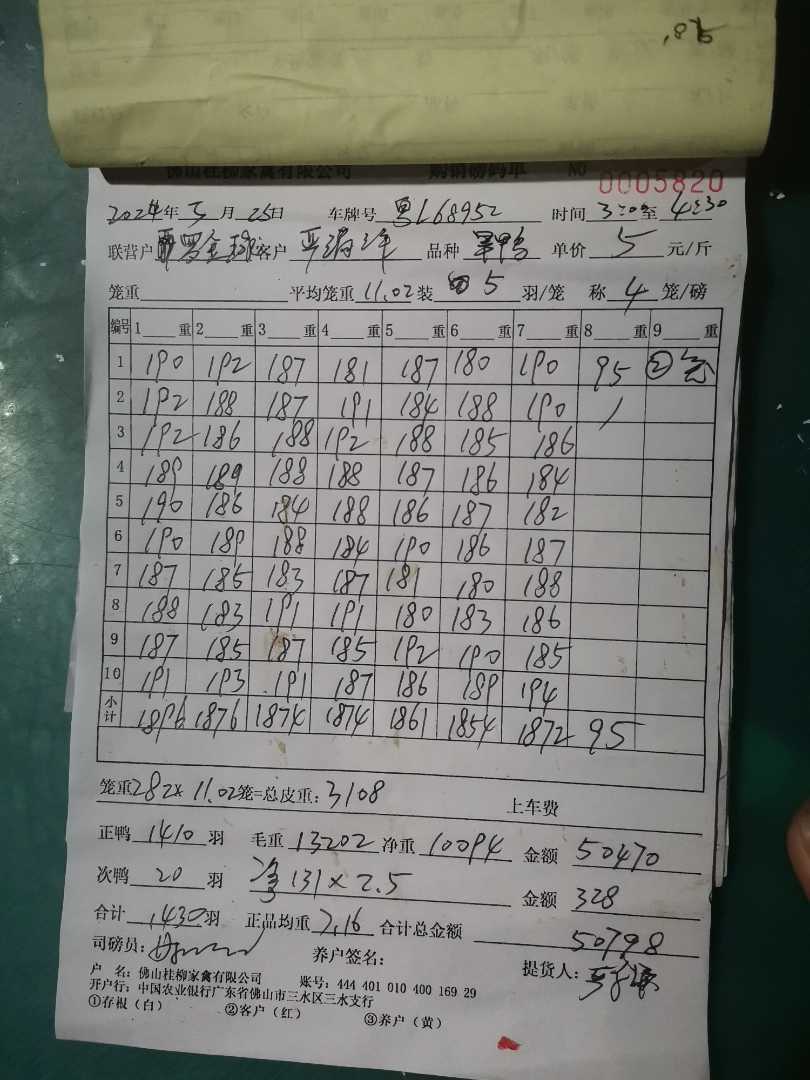 佛山桂柳家禽有限公司 购销磅码单 NO 0005820
2024年5月25日 车牌号 粤L68952 时间 3:20至4:30
联营户 罗金球 客户 品种 单价 5 元/斤
笼重 平均笼重 11.02 装 5 羽/笼 称 4 笼/磅
编号 1 重 2 重 3 重 4 重 5 重 6 重 7 重 8 重 9 重
1 190 192 187 181 187 180 190 95 ②
2 192 188 187 191 184 188 190 /
3 192 186 188 192 188 185 186
4 189 189 188 188 187 186 184
5 190 186 184 188 186 187 182
6 190 189 188 184 190 186 187
7 187 185 183 187 181 180 188
8 188 183 191 191 180 183 186
9 187 185 187 185 192 190 185
10 191 193 191 187 186 189 194
小计 1896 1876 1874 1874 1861 1854 1872 95
笼重282× 11.02笼=总皮重:3108 上车费
正鸭 1410 羽 毛重 13202 净重 10094 金额 50470
次鸭 20 羽 净131×2.5 金额 328
合计 1430 羽 正品均重 7.16 合计总金额 50798
司磅员: 养户签名: 提货人:
户 名:佛山桂柳家禽有限公司 账号:444 401 010 400 169 29
开户行:中国农业银行广东省佛山市三水区三水支行
①存根(白) ②客户(红) ③养户(黄)